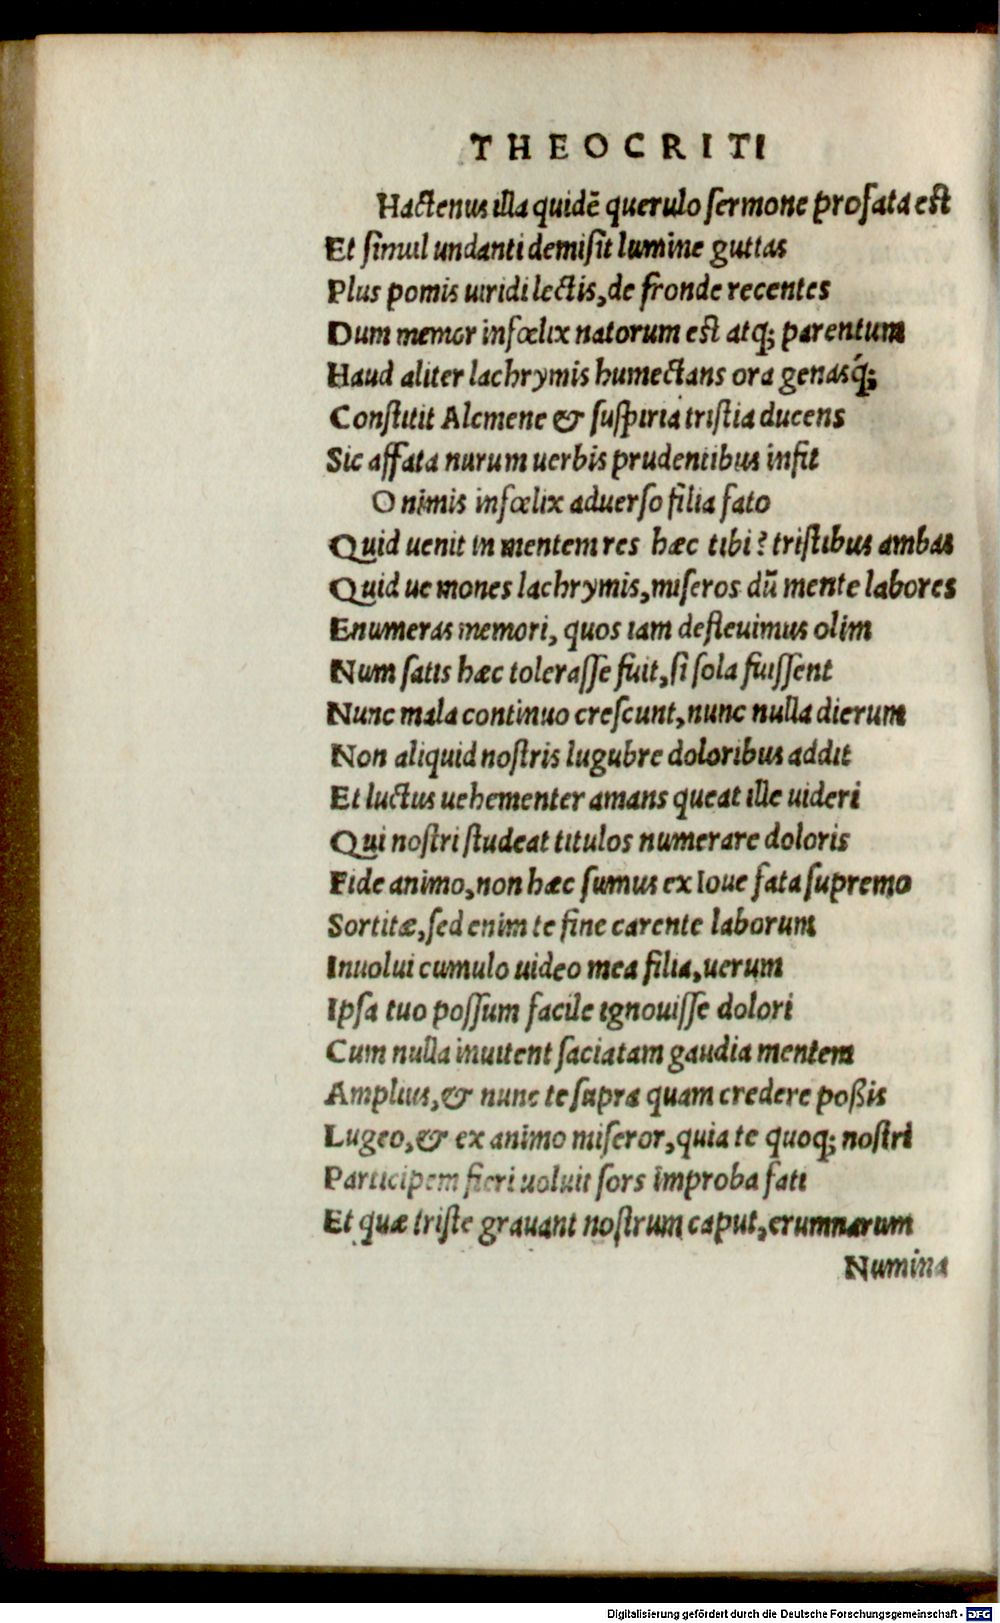 THEOCRITI
Hactenus illa quidē querulo sermone profata est
Et simul undanti demisit lumine guttas
Plus pomis uiridi lectis, de fronde recentes
Dum memor infœlix natorum est atq; parentum
Haud aliter lachrymis humectans ora genasq́;
Constitit Alcmene & suspiria tristia ducens
Sic affata nurum uerbis prudentibus infit
O nimis infœlix aduerso filia fato
Quid uenit in mentem res hæc tibi? tristibus ambas
Quid ue mones lachrymis, miseros dū mente labores
Enumeras memori, quos iam defleuimus olim
Num satis hæc tolerasse fuit, si sola fuissent
Nunc mala continuo crescunt, nunc nulla dierum
Non aliquid nostris lugubre doloribus addit
Et luctus uehementer amans queat ille uideri
Qui nostri studeat titulos numerare doloris
Fide animo, non hæc sumus ex Ioue fata supremo
Sortitæ, sed enim te fine carente laborum
Inuolui cumulo uideo mea filia, uerum
Ipsa tuo possum facile ignouisse dolori
Cum nulla inuitent saciatam gaudia mentem
Amplius, & nunc te supra quam credere poßis
Lugeo, & ex animo miseror, quia te quoq; nostri
Participem fieri uoluit sors improba fati
Et quæ triste grauant nostrum caput, erumnarum
Numina
Digitalisierung gefördert durch die Deutsche Forschungsgemeinschaft - DFG